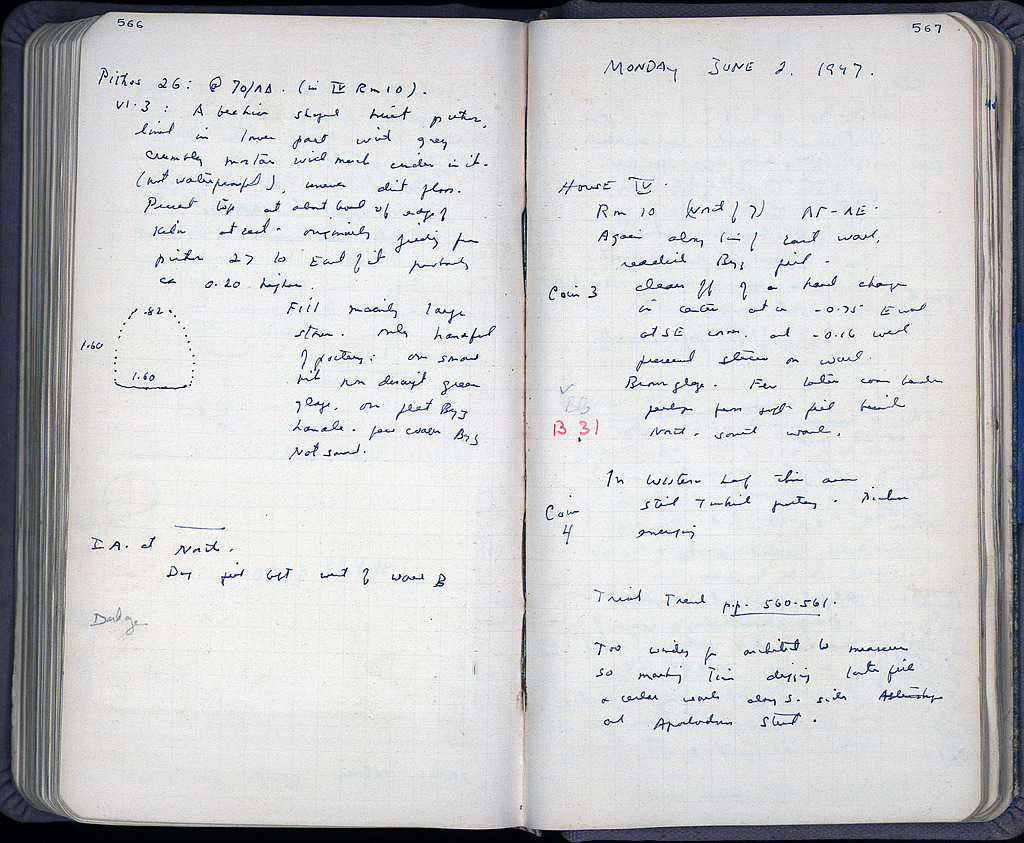 566
Pithos 26: @ 70/ΛΔ. (in IV Rm 10).
VI.3: A beehive shaped built pithos,
lined in lower part with grey
crumbly mortar with much cinder in it.
(not waterproofed), uneven dirt floor.
Preset top at about level of edge of
Kiln at east - originally
pithos 27 to East of it probably
ca 0.20 higher.
.82
1.60
1.60
Fill mainly large
stones. Only handful
of pottery: one small
bit non descript green
glaze. one flat Byz
handle. few coarse Byz
Not saved.
I.A. at North.
Dug fill left west of wall B
Dodge
567
MONDAY JUNE 2. 1947.
HOUSE IV.
Rm 10 (North of 7) ΛΓ-ΛΕ.
Again along line of east wall,
reached Byz fill.
Coin 3
clean off of a hard
in center at ca -0.75 E wall
at SE corn. at -0.16 with
present stones on wall.
Brown glaze. Few later
BB
B 31
perhaps from fill beside
North - south wall.
In western half this area
still Turkish pottery. Pithos
Coin
4
emerging
Trial Trench pp. 560-561.
Too windy for architect to measure
so marking time digging later fill
walls along S. side
of Apollodoros Street.